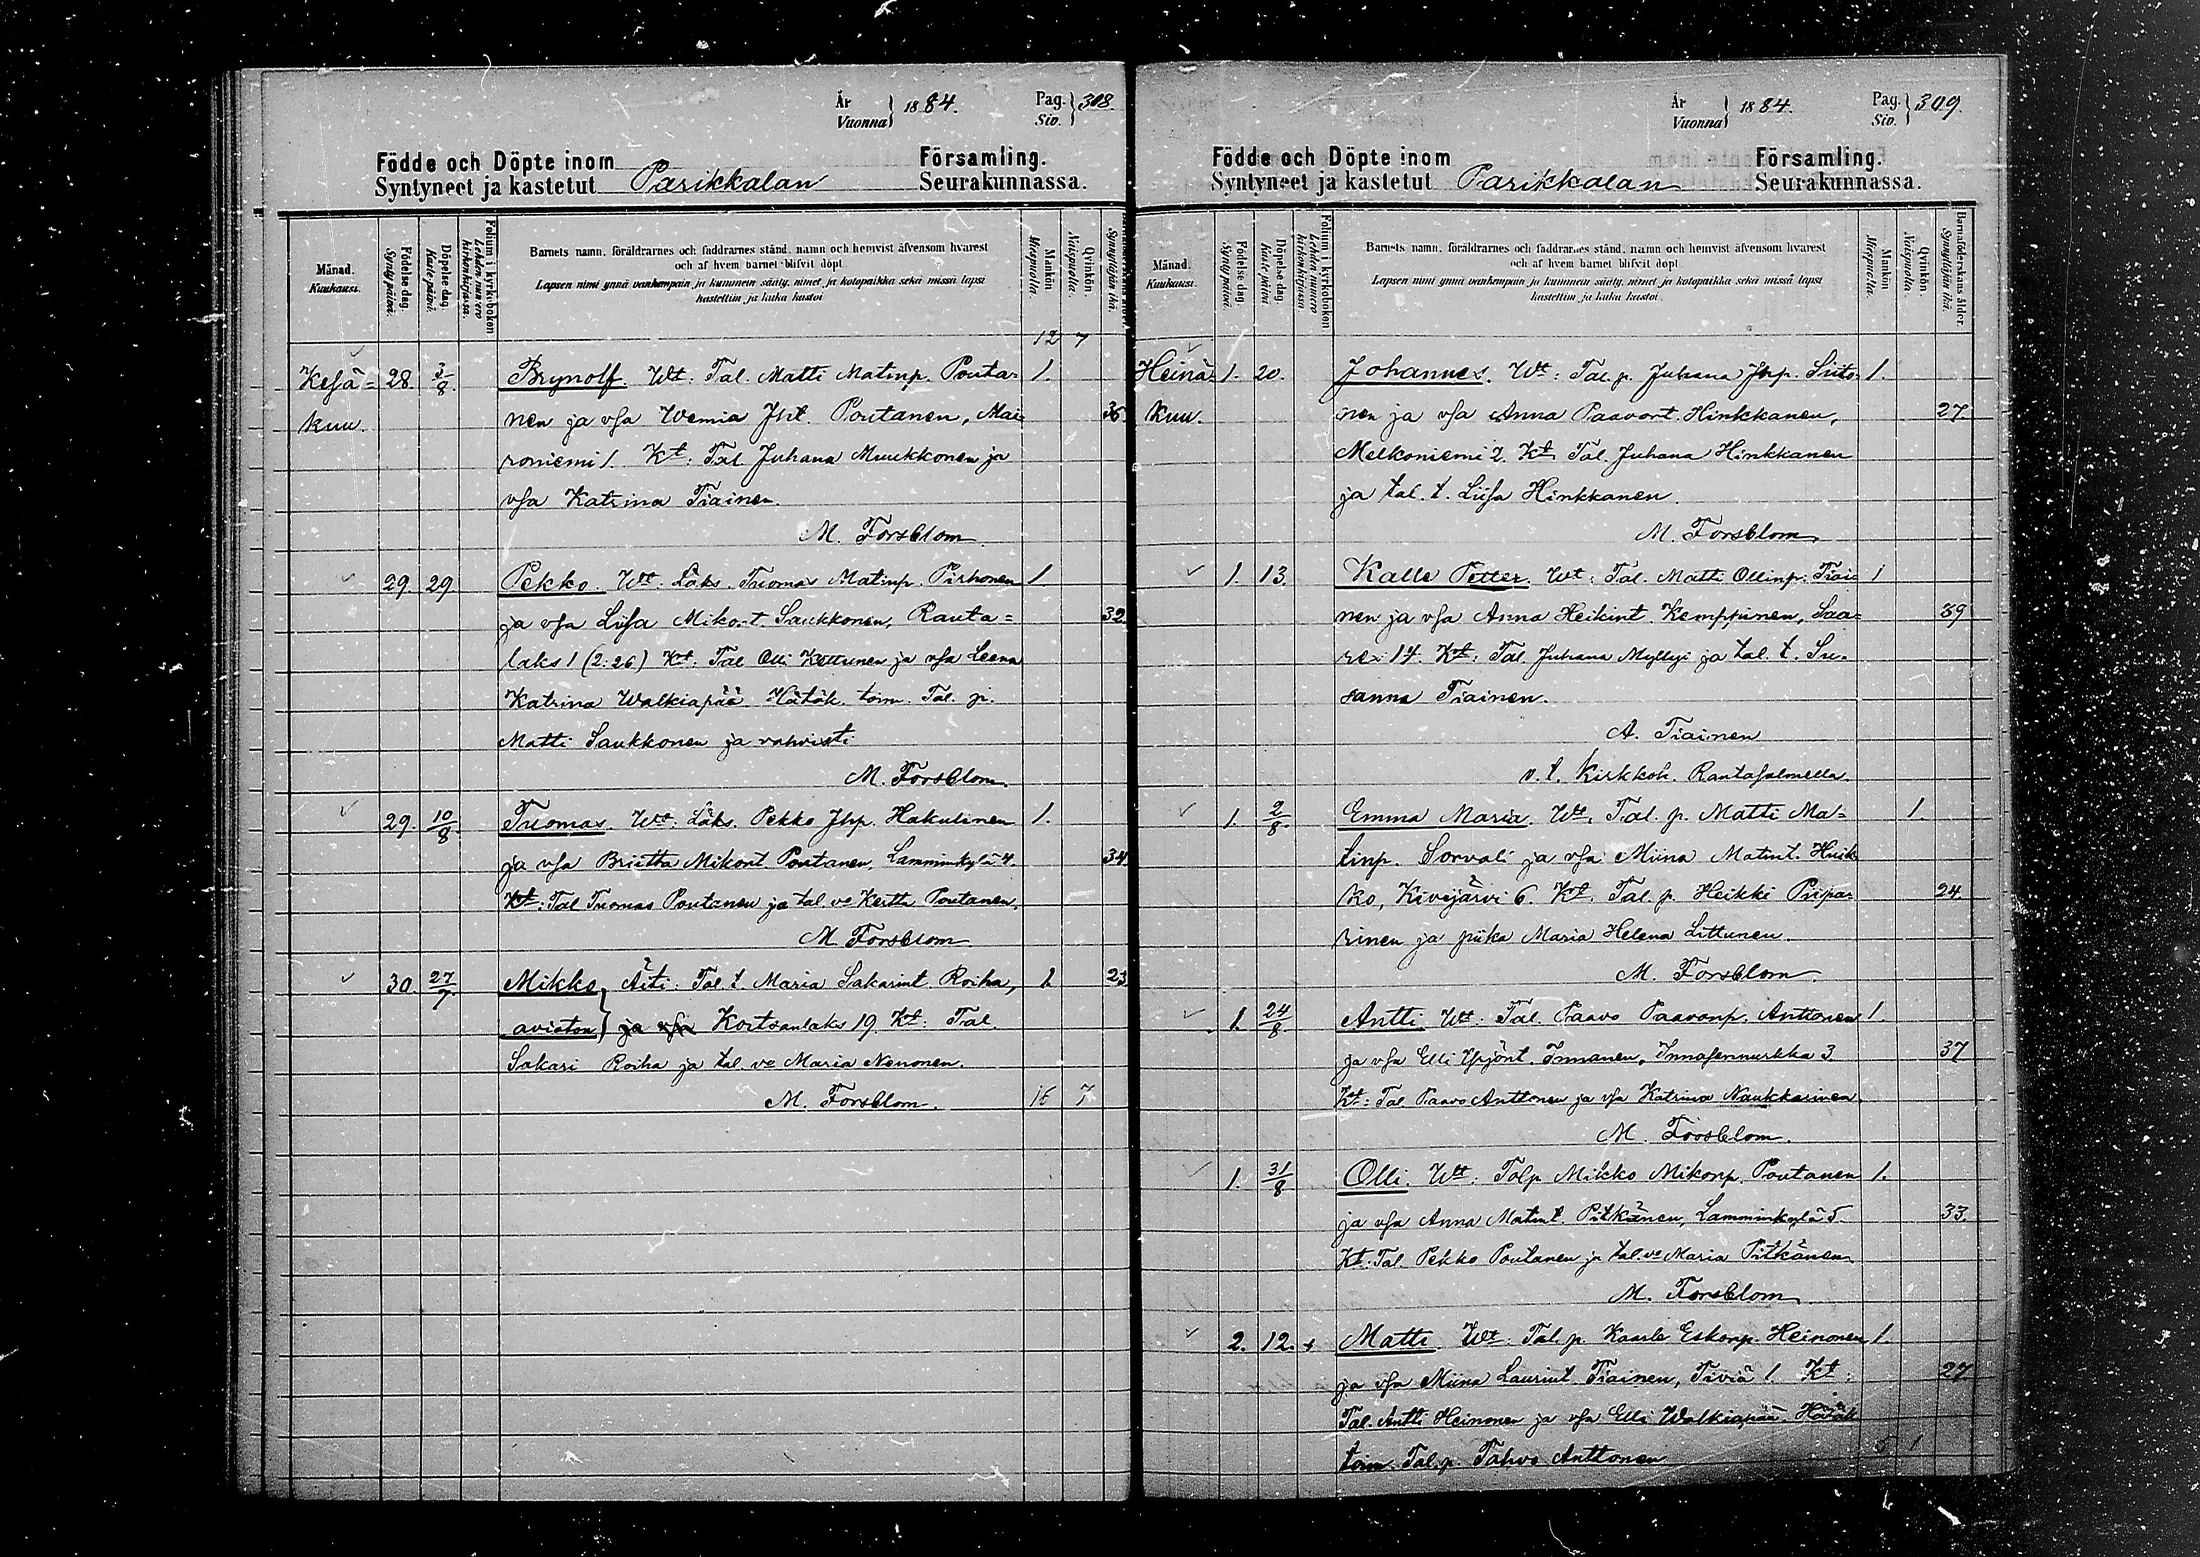 År
Vuonna } 1884.
Pag.
Siv. } 308.
Födde och Döpte inom Församling.
Syntyneet ja kastetut Parikkalan Seurakunnassa.
Månad.
Kuukausi.
Födelse dag.
Syntypäivä.
Döpelse dag.
Kastepäivä.
Folium i kyrkoboken
Lehden numero
kirkonkirjassa.
Barnets namn, föräldrarnes och faddrarnes stånd, namn och hemvist äfvensom hvarest
och af hvem barnet blifvit döpt.
Lapsen nimi ynnä vanhempain ja kummein sääty, nimet ja kotopaikka sekä missä lapsi
kastettiin ja kuka kastoi.
Mankön
Miespuolia.
Qvinkön.
Naispuolia.
Synnyttäjän ikä.
12 7
Kesä= 28. 3/8 Brynolf. Wt: Tal. Matti Matinp. Pouta- 1.
kuu. nen ja vsa Wemia Jht. Poutanen, Mai= 36.
roniemi 1. Kt: Tal Juhana Muukkonen ja
vsa Katrina Tiainen.
M. Forsblom
29. 29. Pekko. Wt: Läks. Tuomas Matinp. Pirhonen 1
ja vsa Lisa Mikont. Saukkonen, Rauta= 32.
laks 1 (2:26) Kt: Tal Olli Kettunen ja vsa Leena
Katrina Walkiapää. Hätäk. toim. Tal. p.
Matti Saukkonen ja vahvisti
M. Forsblom.
29. 10/8 Tuomas. Wt: Läks. Pekko Jhp. Hakulinen 1.
ja vsa Briitta Mikont Poutanen, Lamminkylä 4. 34
Kt: Tal Tuomas Poutanen ja tal. vo Kertti Poutanen.
M. Forsblom
30. 27/7. Mikko Äiti: Tal. t. Maria Sakarint. Roiha, 1 23
avioton } ja vsa Koitsanlaks 19. Kt: Tal
Sakari Roiha ja tal. vo Maria Nenonen.
M. Forsblom. 16 7
År
Vuonna } 1884.
Pag.
Siv. } 309.
Födde och Döpte inom Församling.
Syntyneet ja kastetut Parikkalan Seurakunnassa.
Månad.
Kuukausi.
Födelse dag.
Syntypäivä.
Döpelse dag.
Kastepäivä
Folium i kyrkoboken
Lehden numero
kirkonkirjassa.
Barnets namn, föräldrarnes och faddrarnes stånd, namn och hemvist äfvensom hvarest
och af hvem barnet blifvit döpt
Lapsen nimi ynnä vanhempain ja kummein sääty, nimet ja kotopaikka sekä missä lapsi
kastettiin ja kuka kastoi.
Mankön
Miespuolia.
Qvinkön.
Naispuolia.
Barnaföderskans ålder.
Synnyttäjän ikä.
Heinä= 1. 20. Johannes. Wt: Tal. p. Juhana Jhp. Siito- 1.
kuu. nen ja vsa Anna Paavont. Hinkkanen, 27.
Melkoniemi 2. Kt: Tal. Juhana Hinkkanen
ja tal. t. Liisa Hinkkanen.
M. Forsblom.
1. 13. Kalle Petter. Wt: Tal. Matti Ollinp. Tiai= 1
nen ja vsa Anna Heikint. Kemppinen, Saa= 39
re 14. Kt: Tal. Juhana Myllyi ja tal. t. Su-
sanna Tiainen.
A. Tiainen
v. t. Kirkkoh. Rantasalmella.
1. 2/8. Emma Maria. Wt: Tal. p. Matti Ma= 1.
tinp. Sorvali ja vsa Miina Matint. Huik
ko, Kivijärvi 6. Kt: Tal. p. Heikki Piipa- 24.
rinen ja piika Maria Helena Littunen.
M. Forsblom
1. 24/8. Antti Wt: Tal. Paavo Paavonp. Anttonen 1
ja vsa Elli Yrjönt. Innanen, Innasennurkka 3. 37
Kt: Tal. Paavo Anttonen ja vsa Katrina Naukkarinen.
M. Forsblom.
1. 31/8 Olli. Wt: Talp Mikko Mikonp. Poutanen 1.
ja vsa Anna Matint. Pitkänen, Lamminkylä 5. 33.
Kt: Tal. Pekko Poutanen ja tal. vo Maria Pitkänen
M. Forsblom
2. 12. + Matti Wt: Tal. p. Kaarle Eskonp. Heinonen 1.
ja vsa Miina Laurint Tiainen, Tiviä 1 Kt: 27
Tal. Antti Heinonen ja vsa Elli Walkiapää. Hätäk
toim. Tal. p. Tahvo Anttonen 5 1